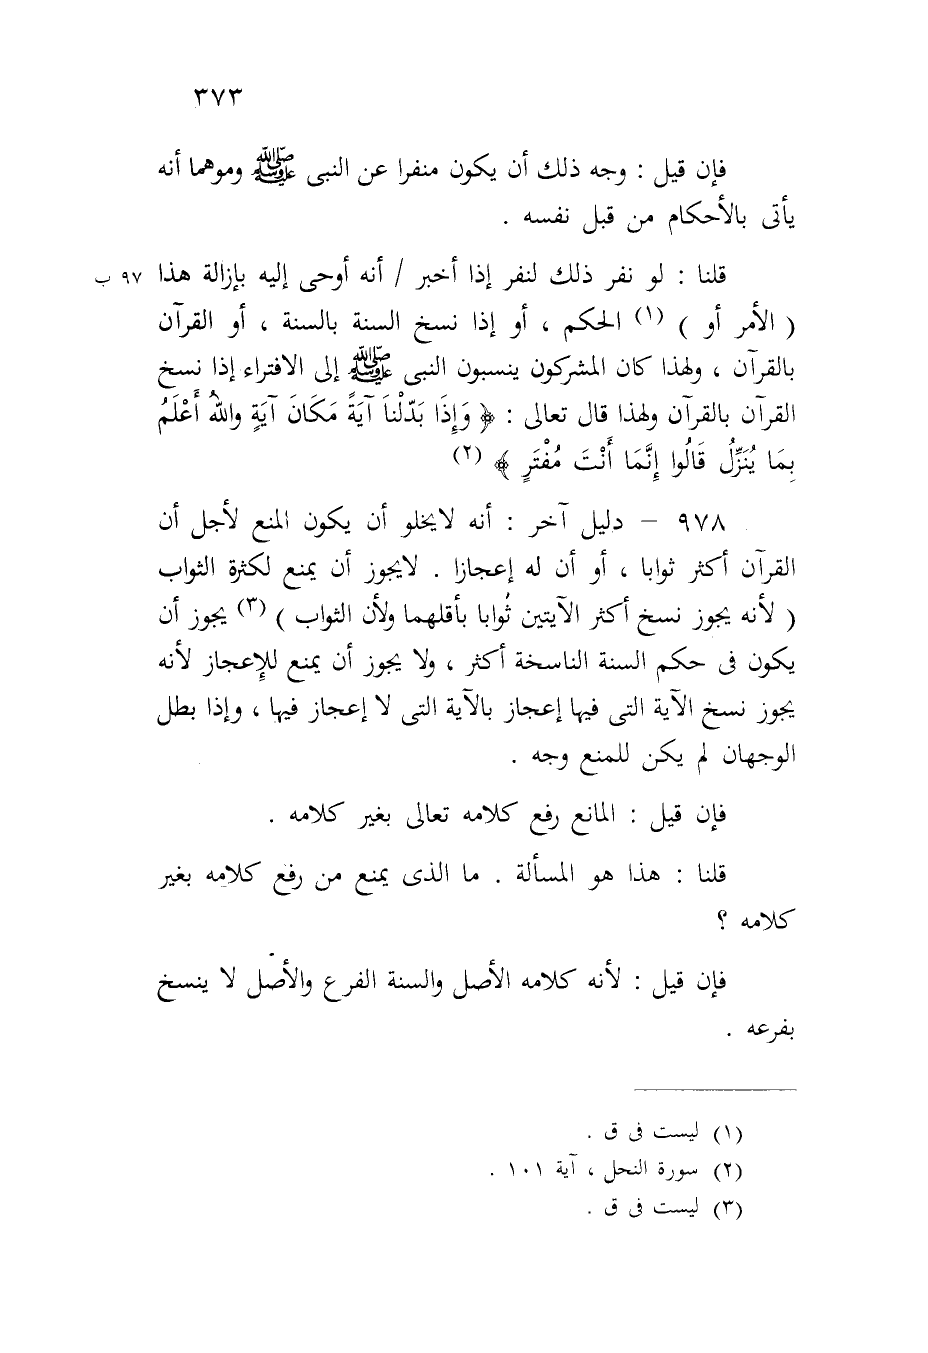 ٣٧٣
فإن قيل : وجه ذلك أن يكون منفرا عن النبى ﷺ وموهما أنه
يأتى بالأحكام من قبل نفسه .
قلنا : لو نفر ذلك لنفر إذا أخبر / أنه أوحى إليه بإزالة هذا ٩٧ ب
( الأمر أو ) (١) الحكم ، أو إذا نسخ السنة بالسنة ، أو القرآن
بالقرآن ، ولهذا كان المشركون ينسبون النبى ﷺ إلى الافتراء إذا نسخ
القرآن بالقرآن ولهذا قال تعالى : ﴿ وَإِذَا بَدّلْناَ آيَةً مَكَانَ آيَةٍ واللهُ أَعْلَمُ
بِمَا يُنَزِّلُ قَالُوا إِنَّمَا أَنْتَ مُفْتَرٍ ﴾ (٢)
٩٧٨ – دليل آخر : أنه لايخلو أن يكون المنع لأجل أن
القرآن أكثر ثوابا ، أو أن له إعجازا . لايجوز أن يمنع لكثرة الثواب
( لأنه يجوز نسخ أكثر الآيتين ثُوابا بأقلهما ولأن الثواب ) (٣) يجوز أن
يكون فى حكم السنة الناسخة أكثر ، ولا يجوز أن يمنع للإعجاز لأنه
يجوز نسخ الآية التى فيها إعجاز بالآية التى لا إعجاز فيها ، وإذا بطل
الوجهان لم يكن للمنع وجه .
فإن قيل : المانع رفع كلامه تعالى بغير كلامه .
قلنا : هذا هو المسألة . ما الذى يمنع من رفع كلامه بغير
كلامه ؟
فإن قيل : لأنه كلامه الأصل والسنة الفرع والأصل لا ينسخ
بفرعه .
(١) ليست فى ق .
(٢) سورة النحل ، آية ١٠١ .
(٣) ليست فى ق .